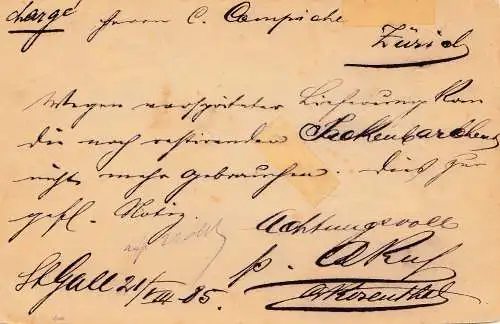 chargé
Herrn C. Campiche
Zürich
Wegen verspäteter Lieferung kan
die noch restirenden
nicht mehr gebrauchen. Dies zur
gefl. Notiz.
Achtungsvoll
St Gall 21/VII - 85.
p.
A Rosenthal